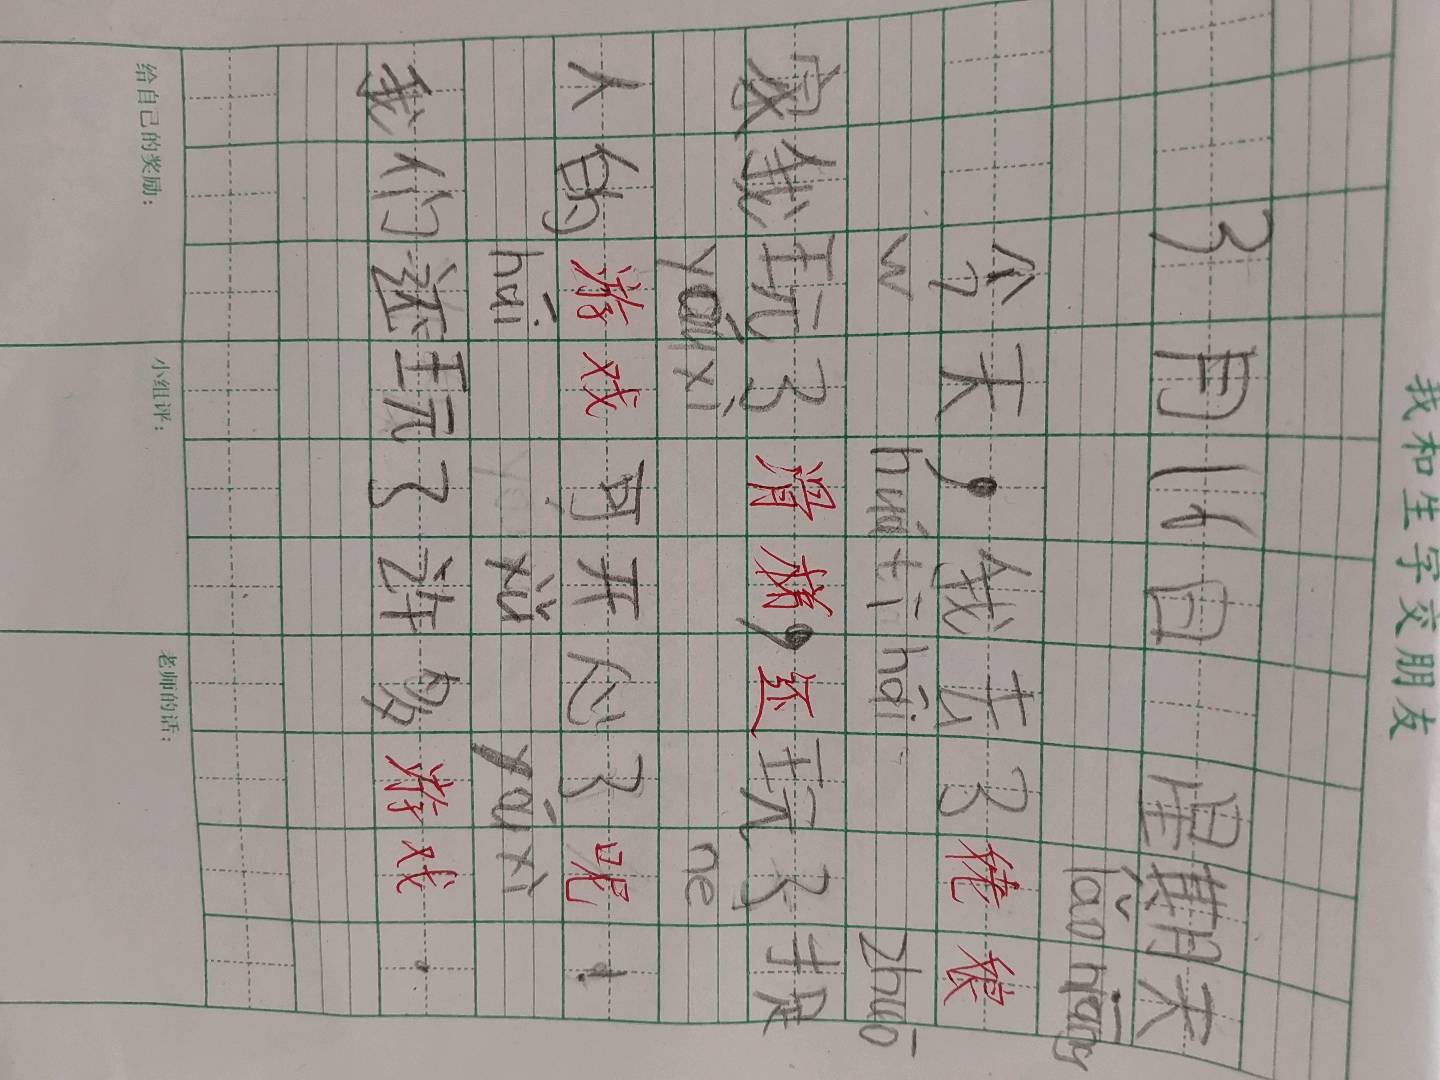 我和生字交朋友
3月16日 星期天
lǎo niāng
今天，我去了姥娘
w huá tī hāi zhuō
家我玩了滑梯，还玩了捉
xì ne
人的游戏可开心了呢！
hāi xǔ xì
我们还玩了许多游戏.
给自己的奖励： 小组评： 老师的话：